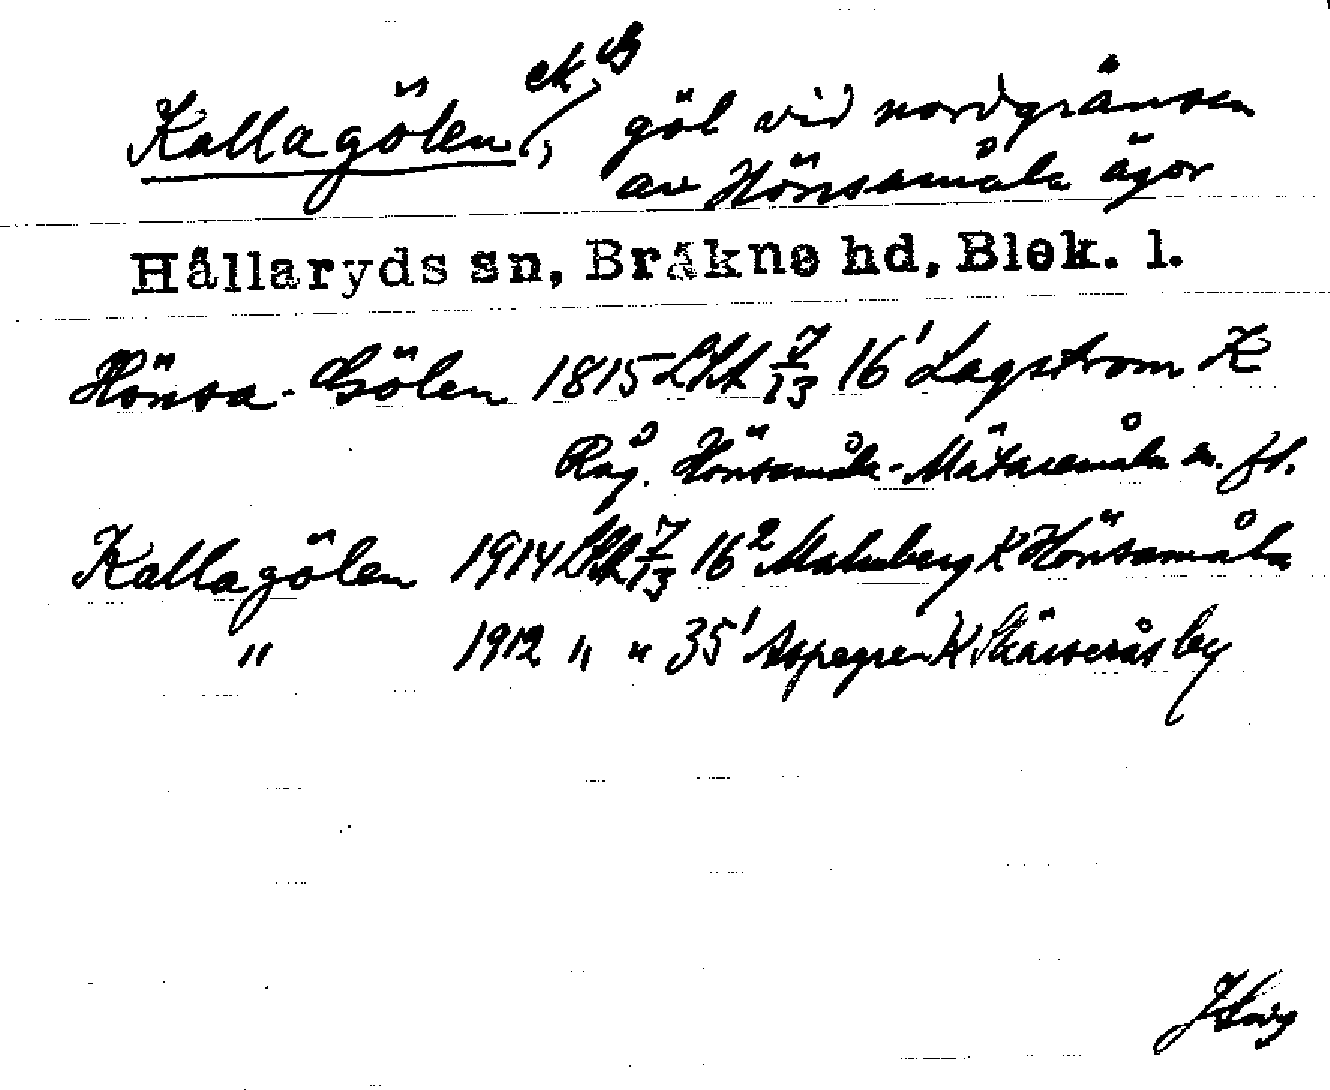 Kallagölen, ek B göl vid nordgränsen
av Hönsamåla ägor
Hällaryds sn, Bräkne hd, Blek. l.
Hönsa-Gölen 1815 LSA 7/13 16¹ Lagström K
Råg. Hönsamåla-Mätaremåla m. fl.
Kallagölen 1914 LSA 7/13 16² Malmberg K Hönsamåla
" 1912 " " 35¹ Aspegren K by